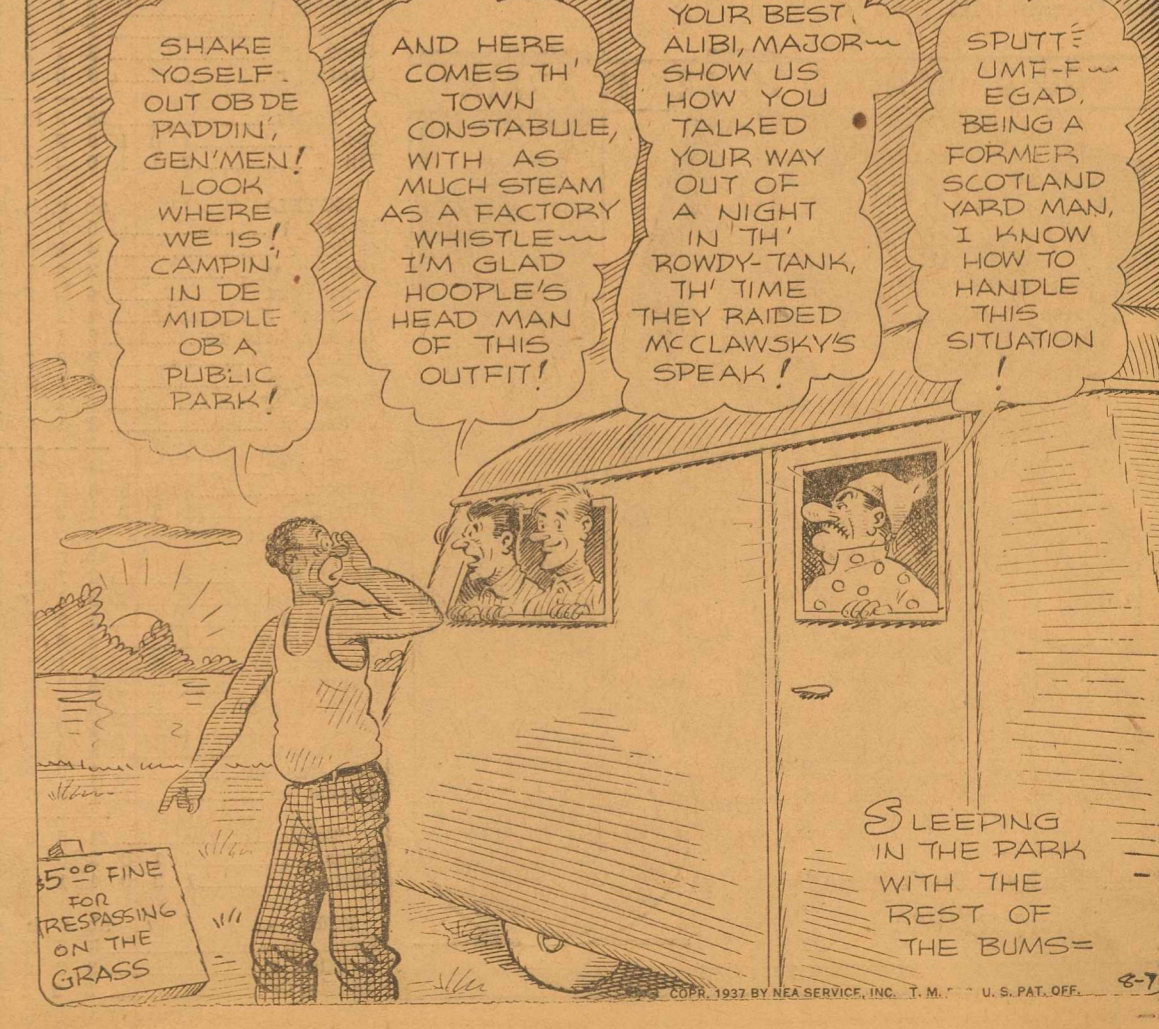 SHAKE
YOSELF
OUT OB DE
PADDIN',
GEN'MEN!
LOOK
WHERE
WE IS!
CAMPIN'
IN DE
MIDDLE
OB A
PUBLIC
PARK!
AND HERE
COMES TH'
TOWN
CONSTABULE,
WITH AS
MUCH STEAM
AS A FACTORY
WHISTLE~~
I'M GLAD
HOOPLE'S
HEAD MAN
OF THIS
OUTFIT!
YOUR BEST
ALIBI, MAJOR~~
SHOW US
HOW YOU
TALKED
YOUR WAY
OUT OF
A NIGHT
IN TH'
ROWDY-TANK,
TH' TIME
THEY RAIDED
McCLAWSKY'S
SPEAK!
SPUTT
UMF-F~~
EGAD,
BEING A
FORMER
SCOTLAND
YARD MAN,
I KNOW
HOW TO
HANDLE
THIS
SITUATION
!
$5.00 FINE
FOR
TRESPASSING
ON THE
GRASS
SLEEPING
IN THE PARK
WITH THE
REST OF
THE BUMS=
8-7
COPR. 1937 BY NEA SERVICE, INC. T. M. U. S. PAT. OFF.